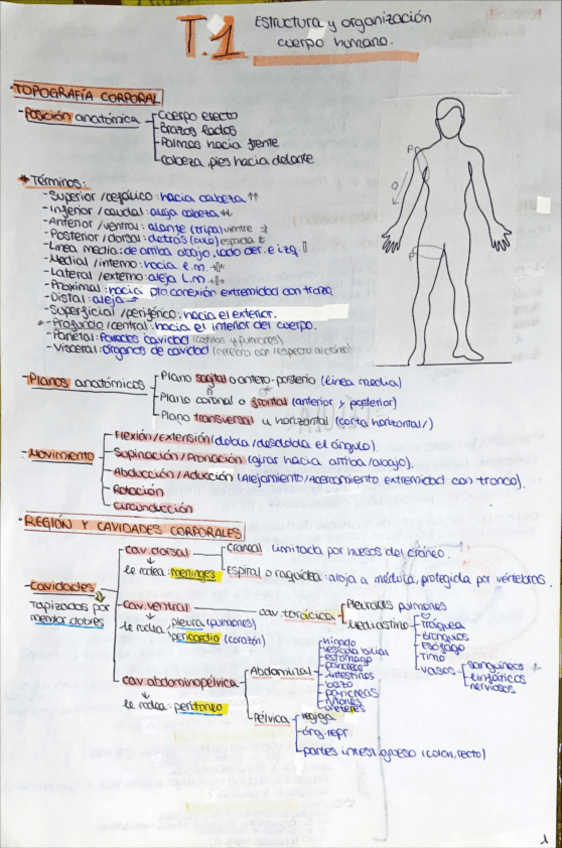 T.1 Estructura y organización
cuerpo humano.
· TOPOGRAFÍA CORPORAL
- Posición anatómica
Cuerpo erecto
Brazos lados
Palmas hacia frente
Cabeza, pies hacia delante
* Términos:
- Superior / cefálico: hacia cabeza ↑↑
- Inferior / caudal: aleja cabeza ↓↓
- Anterior / ventral: alante (tripa) vientre
- Posterior / dorsal: detrás (culo) espalda
- Línea media: de arriba abajo, lado der. e izq.
- Medial / interno: hacia l.m.
- Lateral / externo: aleja l.m.
- Proximal: hacia pto conexión extremidad con tronco.
- Distal: aleja →
- Superficial / periférico: hacia el exterior.
- Profundo / central: hacia el interior del cuerpo.
- Parietal: Paredes cavidad (costillas y pulmones)
- Visceral: órganos de cavidad (cerebro con respecto al cráneo)
P
D
P
- Planos anatómicos
Plano sagital o antero-posterio (línea medial)
Plano coronal o frontal (anterior y posterior)
Plano transversal u horizontal (corta horizontal/)
- Movimiento
Flexión/Extensión (dobla / desdobla el ángulo).
Supinación/Pronación (girar hacia arriba/abajo).
Abducción / Aducción (Alejamiento/Acercamiento extremidad con tronco).
Rotación
Circunducción
· REGIÓN Y CAVIDADES CORPORALES
- Cavidades
Tapizadas por
membr. dobles
cav. dorsal
le rodea: meninges
Craneal limitada por huesos del cráneo.
Espiral o raquídea: aloja a médula, protegida por vértebras.
cav. ventral
le rodea: pleura (pulmones)
pericardio (corazón)
cav. torácica
Pleurales pulmones
Mediastino
♡
Tráquea
Bronquios
Esófago
Timo
Vasos
sanguíneos
linfáticos
nerviosos
cav. abdominopélvica
le rodea: peritoneo
Abdominal
hígado
vesícula biliar
estómago
páncreas
intestinos
bazo
páncreas
riñones
uréteres
Pélvica
vejiga
órg. repr.
partes intest. grueso (colon, recto)
1